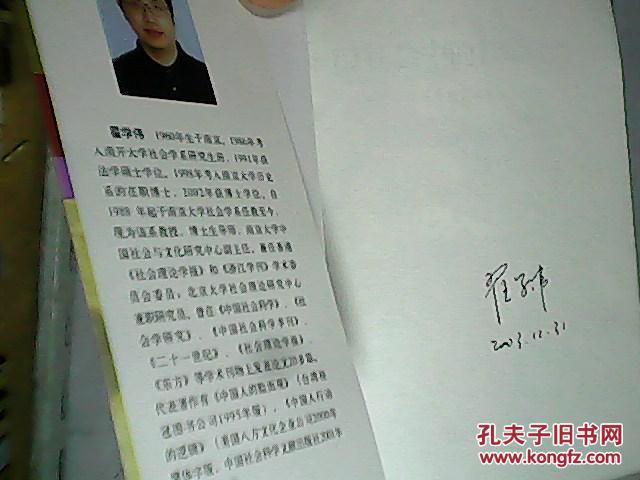 翟学伟 1960年生于南京。1988年考
入南开大学社会学系研究生班,1991年获
法学硕士学位。1998年考入南京大学历史
系的在职博士,2002年获博士学位。自
1988年起于南京大学社会学系任教至今,
现为该系教授,博士生导师,南京大学中
国社会与文化研究中心副主任,兼任香港
《社会理论学报》和《浙江学刊》学术委
员会委员,北京大学社会理论研究中心
兼职研究员。曾在《中国社会科学》、《社
会学研究》、《中国社会科学季刊》、
《二十一世纪》、《社会理论学报》、
《东方》等学术刊物上发表论文
代表著作有《中国人的脸面观》(台湾桂
冠图书公司1995年版)、《中国人行动
的逻辑》(美国八方文化企业公司2000年
繁体字版,中国社会科学文献出版社2001年
翟学伟
2003.12.31
孔夫子旧书网
www.kongfz.com